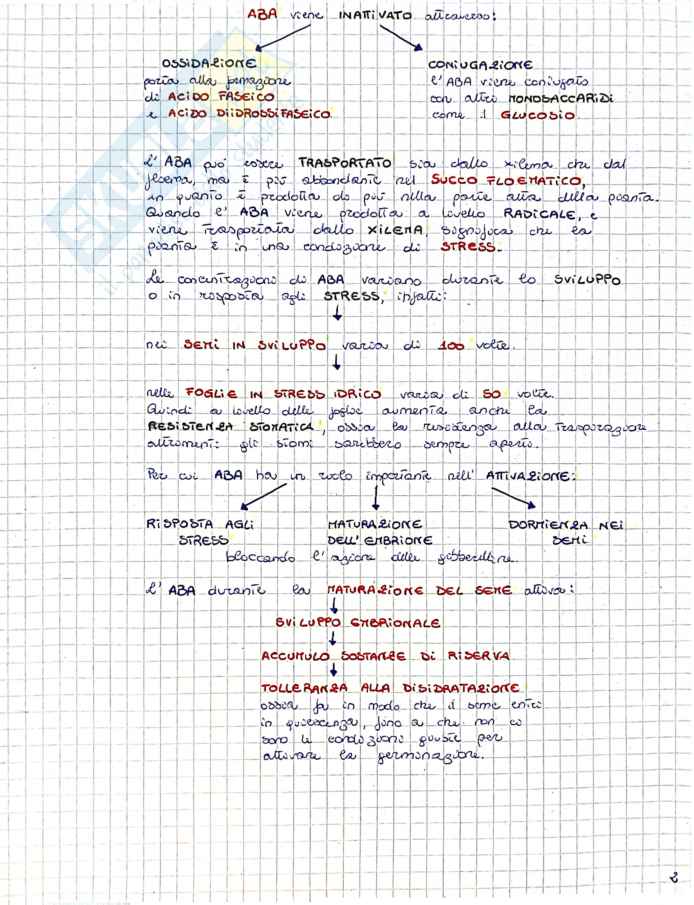 ABA viene INATTIVATO attraverso:
OSSIDAZIONE
porta alla formazione
di ACIDO FASEICO
e ACIDO DIIDROSSIFASEICO
CONIUGAZIONE
l'ABA viene coniugato
con altri MONOSACCARIDI
come il GLUCOSIO
L'ABA può essere TRASPORTATO sia dallo xilema che dal
floema, ma è più abbondante nel SUCCO FLOEMATICO,
in quanto è prodotta di più nella parte alta della pianta.
Quando l'ABA viene prodotta a livello RADICALE, e
viene trasportata dallo XILEMA, significa che la
pianta è in una condizione di STRESS.
Le concentrazioni di ABA variano durante lo SVILUPPO
o in risposta agli STRESS, infatti:
nei SEMI IN SVILUPPO varia di 100 volte.
nelle FOGLIE IN STRESS IDRICO varia di 50 volte.
Quindi a livello delle foglie aumenta anche la
RESISTENZA STOMATICA, ossia la resistenza alla traspirazione
altrimenti gli stomi sarebbero sempre aperti.
Per cui ABA ha un ruolo importante nell'ATTIVAZIONE:
RISPOSTA AGLI
STRESS
MATURAZIONE
DELL'EMBRIONE
DORMIENZA NEI
SEMI
bloccando l'azione delle gibberelline.
L'ABA durante la MATURAZIONE DEL SEME attiva:
SVILUPPO EMBRIONALE
ACCUMULO SOSTANZE DI RISERVA
TOLLERANZA ALLA DISIDRATAZIONE
ossia fa in modo che il seme entri
in quiescenza, fino a che non ci
sono le condizioni giuste per
attivare la germinazione.
2